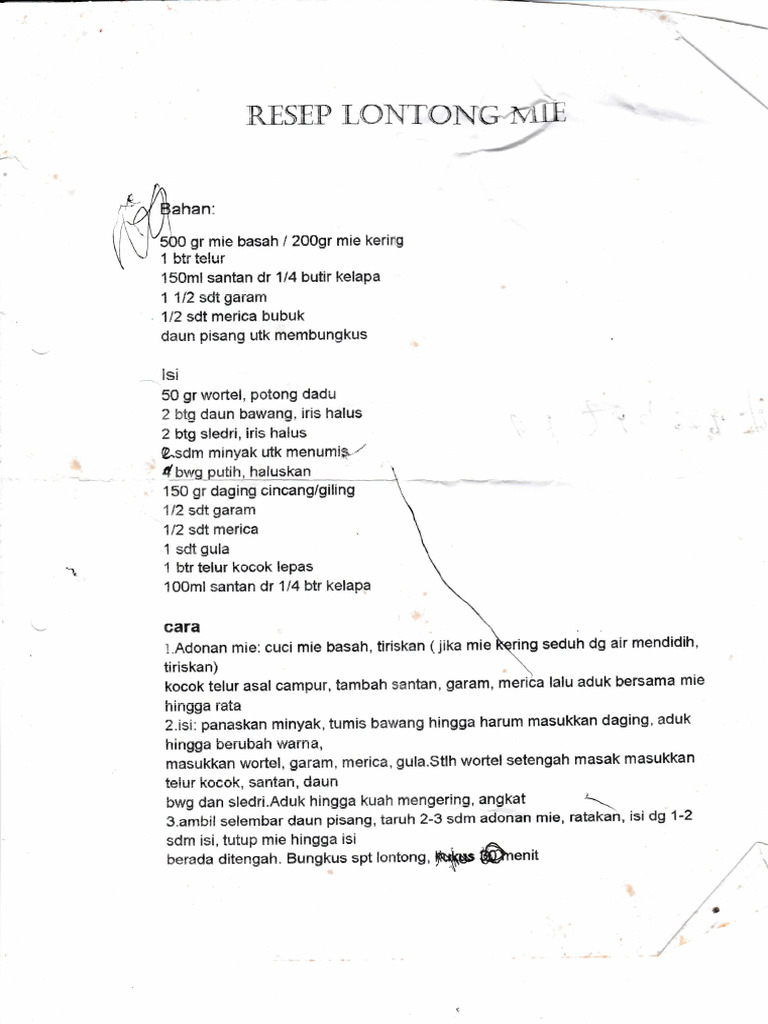 RESEP LONTONG MIE
Bahan:
500 gr mie basah / 200gr mie kerirg
1 btr telur
150ml santan dr 1/4 butir kelapa
1 1/2 sdt garam
1/2 sdt merica bubuk
daun pisang utk membungkus
Isi
50 gr wortel, potong dadu
2 btg daun bawang, iris halus
2 btg sledri, iris halus
2 sdm minyak utk menumis
4 bwg putih, haluskan
150 gr daging cincang/giling
1/2 sdt garam
1/2 sdt merica
1 sdt gula
1 btr telur kocok lepas
100ml santan dr 1/4 btr kelapa
cara
1.Adonan mie: cuci mie basah, tiriskan ( jika mie kering seduh dg air mendidih,
tiriskan)
kocok telur asal campur, tambah santan, garam, merica lalu aduk bersama mie
hingga rata
2.isi: panaskan minyak, tumis bawang hingga harum masukkan daging, aduk
hingga berubah warna,
masukkan wortel, garam, merica, gula.Stlh wortel setengah masak masukkan
telur kocok, santan, daun
bwg dan sledri.Aduk hingga kuah mengering, angkat
3.ambil selembar daun pisang, taruh 2-3 sdm adonan mie, ratakan, isi dg 1-2
sdm isi, tutup mie hingga isi
berada ditengah. Bungkus spt lontong, kukus 30 menit